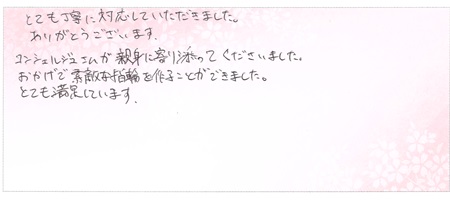 とても丁寧に対応していただきました。
ありがとうございます.
コンシェルジュさんが親身に寄り添ってくださいました。
おかげで素敵な指輪を作ることができました。
とても満足しています.